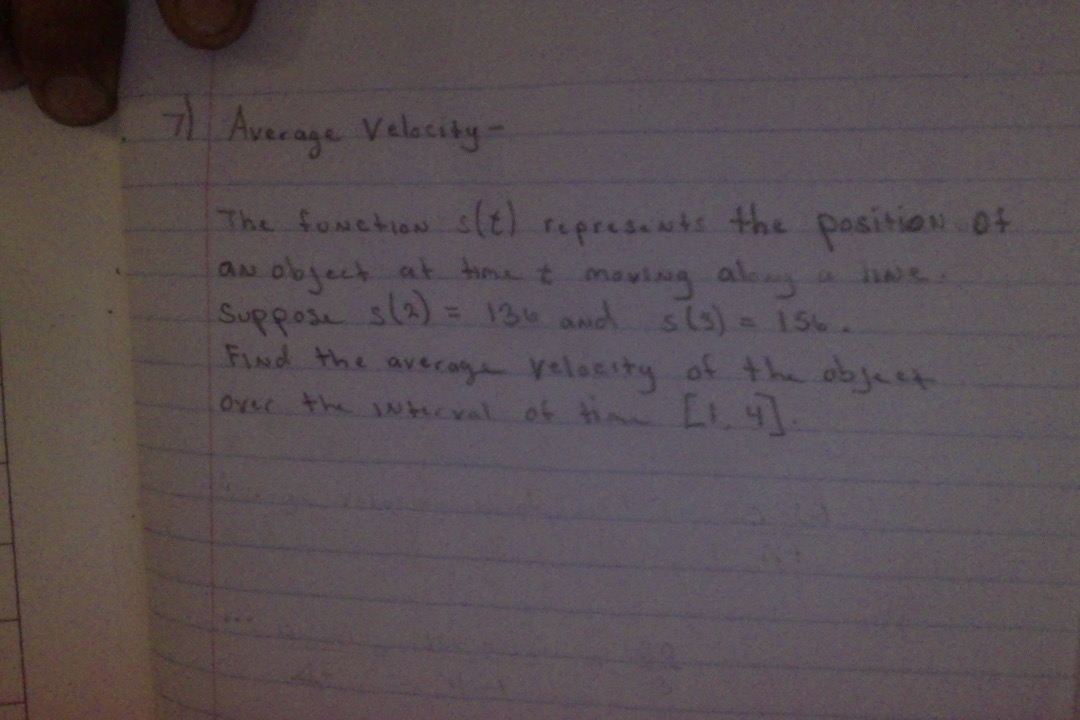 7) Average Velocity -
The function s(t) represents the position of
an object at time t moving along a line.
Suppose s(2) = 136 and s(3) = 156.
Find the average velocity of the object
over the interval of time [1, 4].